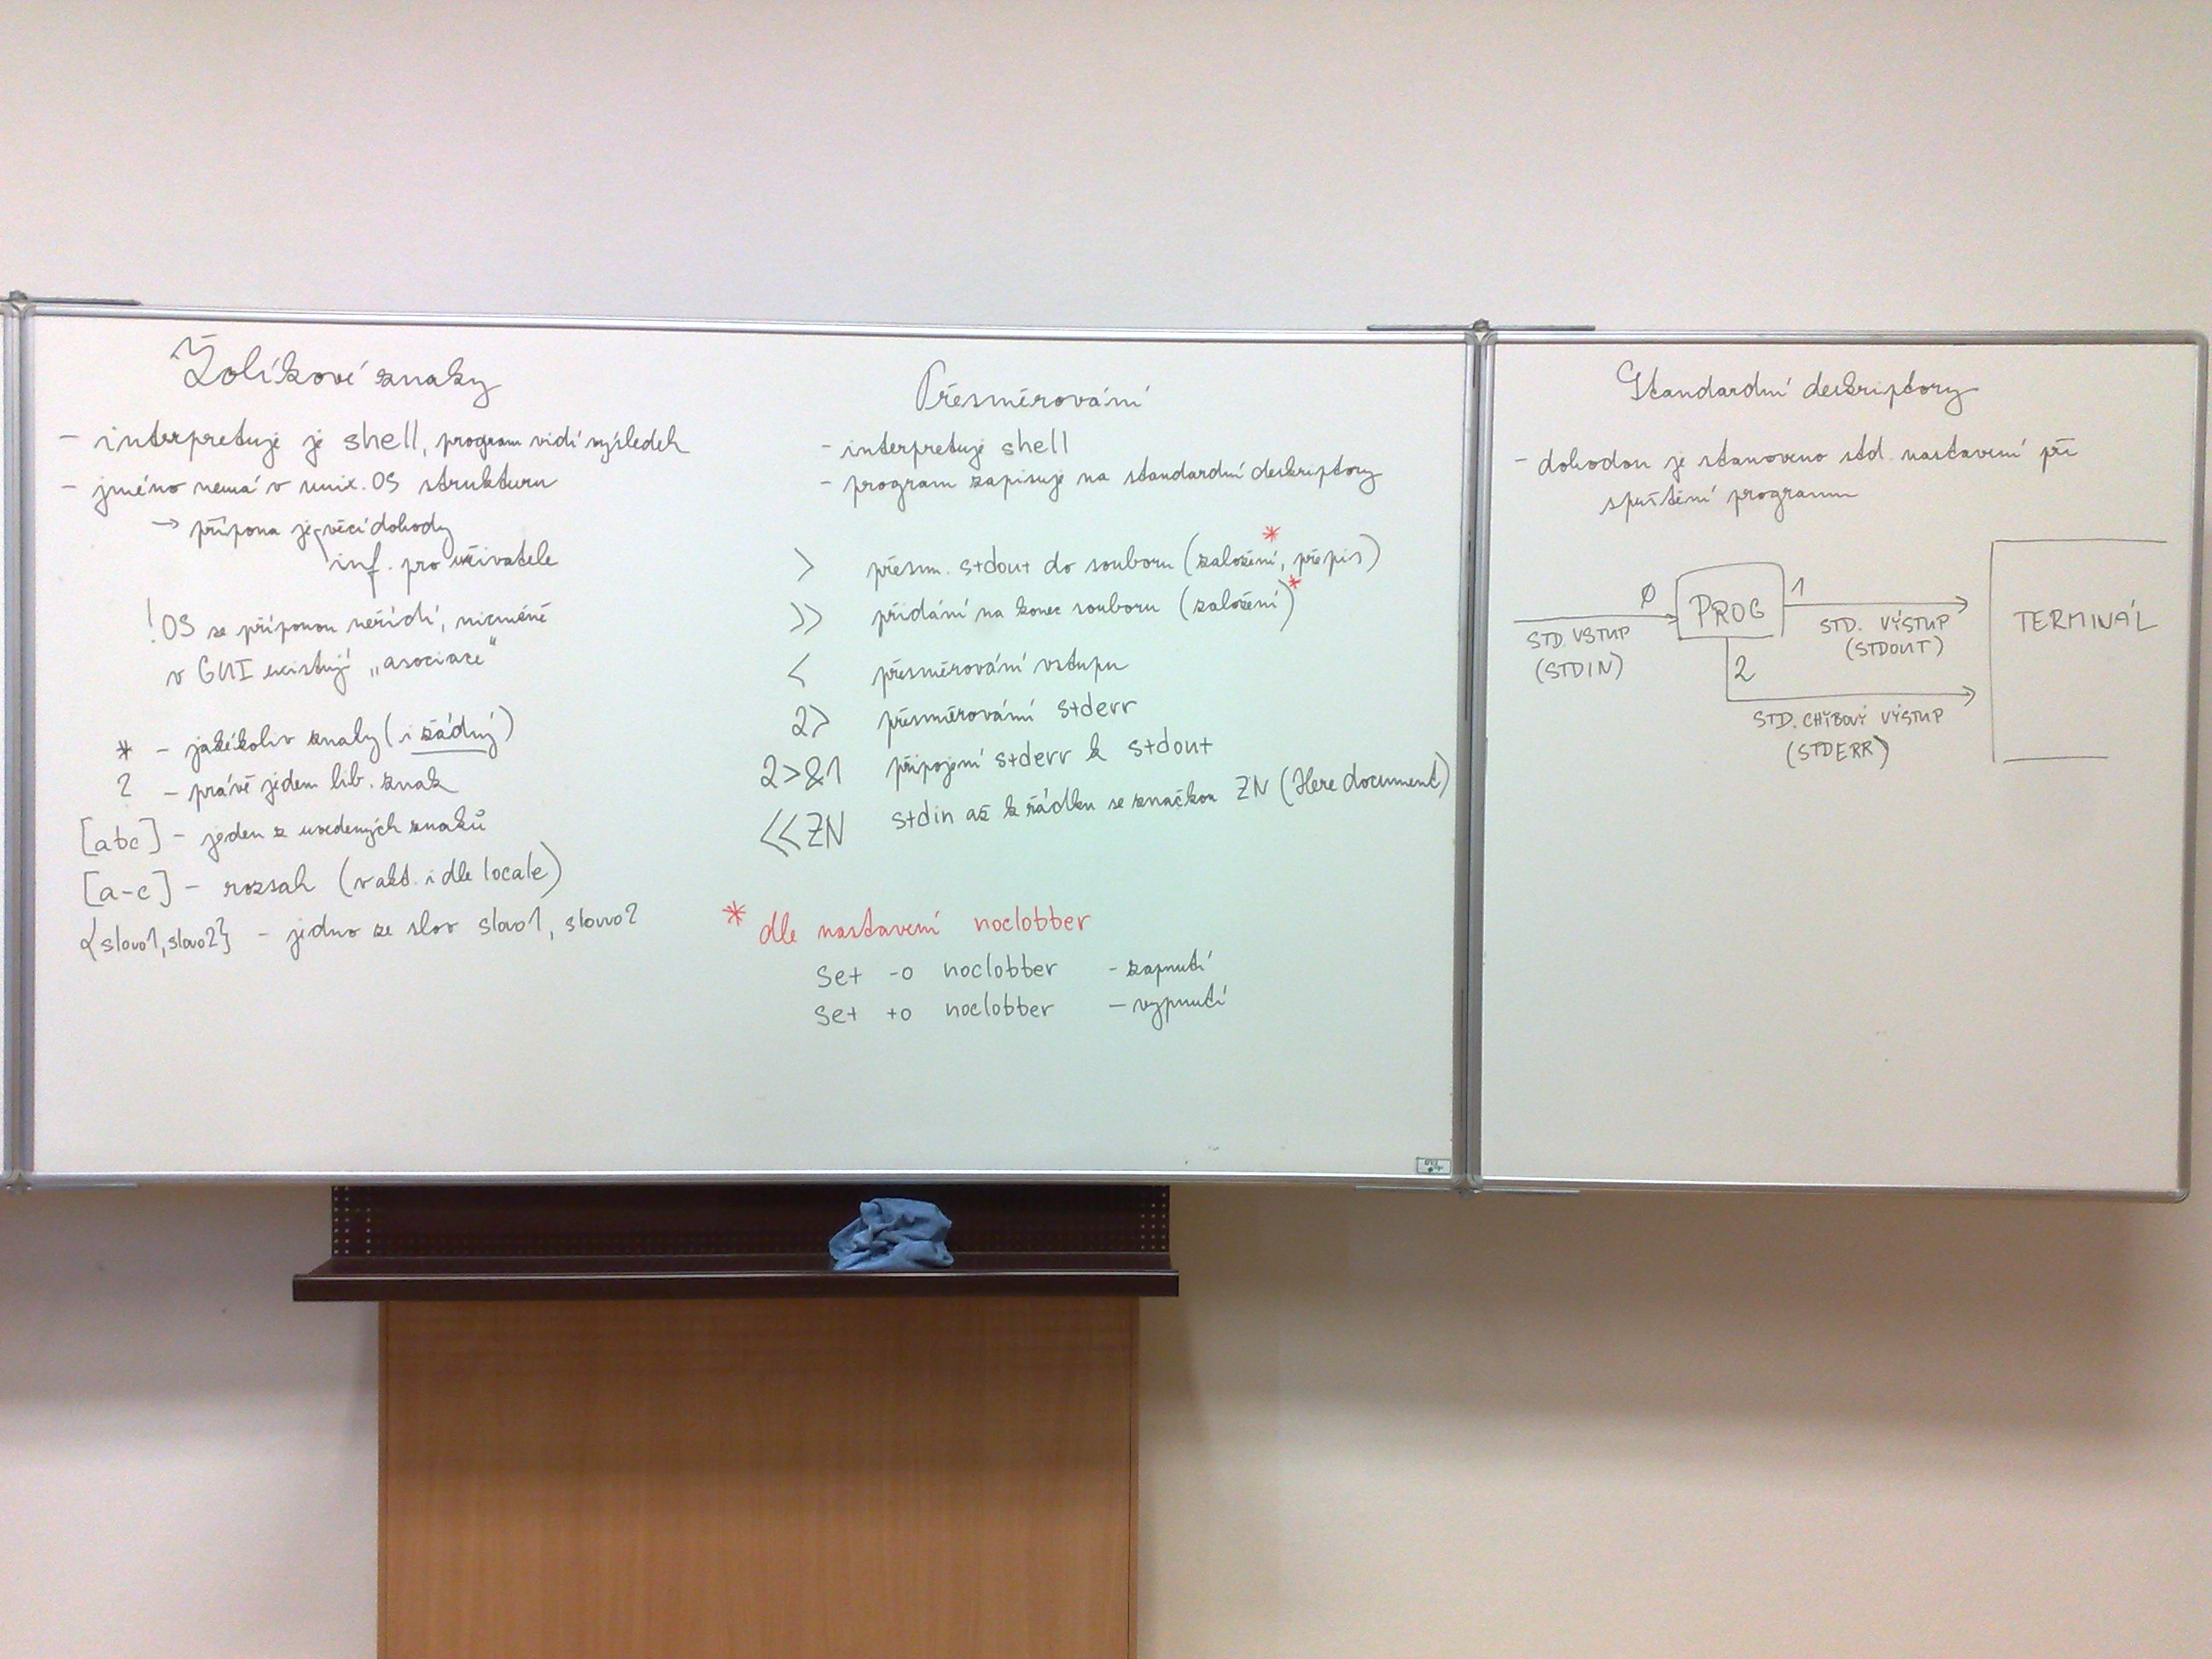 Žolíkové znaky
- interpretuje je shell, program vidí výsledek
- jméno nemá v unix. OS strukturu
→ přípona je věcí dohody
inf. pro uživatele
! OS se příponou neřídí, nicméně
v GUI existují „asociace“
* - jakékoliv znaky (i žádný)
? - právě jeden lib. znak
[abc] - jeden z uvedených znaků
[a-c] - rozsah (v akt. i dle locale)
{slovo1,slovo2} - jedno ze slov slovo1, slovo2
Přesměrování
- interpretuje shell
- program zapisuje na standardní deskriptory
> přesm. stdout do souboru (založení*, přepis)
>> přidání na konec souboru (založení)*
< přesměrování vstupu
2> přesměrování stderr
2>&1 připojení stderr k stdout
<<ZN stdin až k řádku se značkou ZN (Here document)
* dle nastavení noclobber
set -o noclobber - zapnutí
set +o noclobber - vypnutí
Standardní deskriptory
- dohodou je stanoveno std. nastavení při
spuštění programu
0 PROG 1
STD. VSTUP
(STDIN)
STD. VÝSTUP
(STDOUT)
2
STD. CHYBOVÝ VÝSTUP
(STDERR)
TERMINÁL